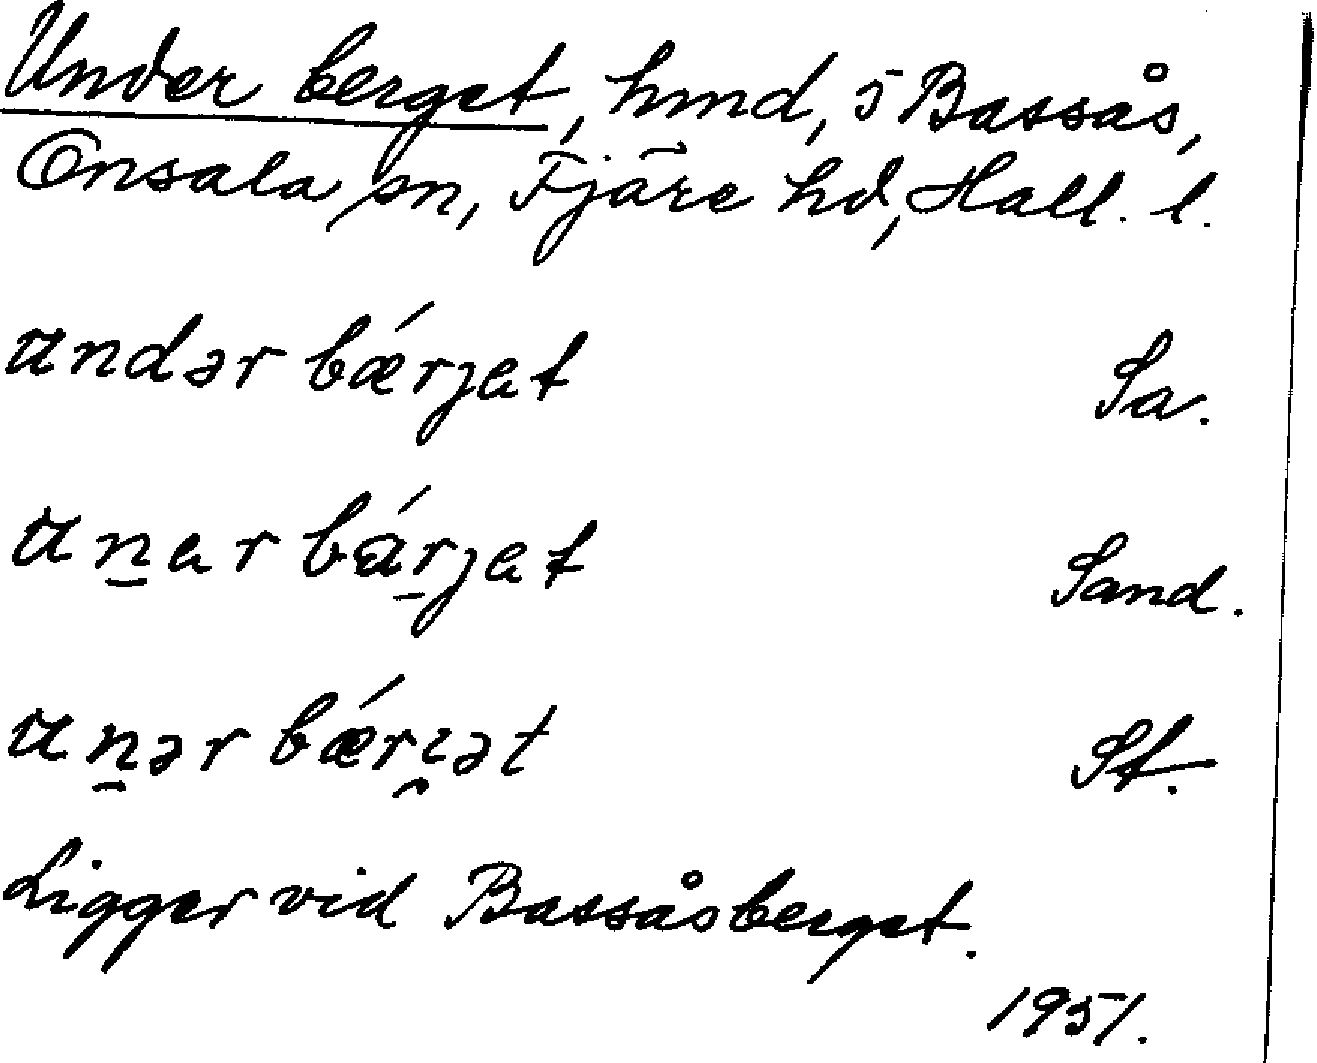 Under berget, hmd, 5 Bassås,
Onsala sn, Fjäre hd, Hall. l.
undər bǽrjet Sa.
uṉer bárjet Sand.
uṉər bǽrɩ̯ət St.
Ligger vid Bassåsberget.
1951.